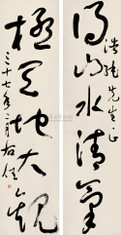 浩然先生正
得山水清气
极天地大观
三十七年二月 右任